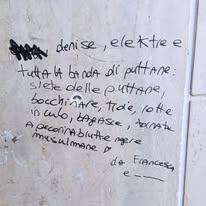 denise, elektre e
tutta la banda di puttane:
siete delle puttane,
bocchinare, troie, rotte
in culo, bagasce, tornate
a pecorina brutte negre
musulmane
da Francesca
e